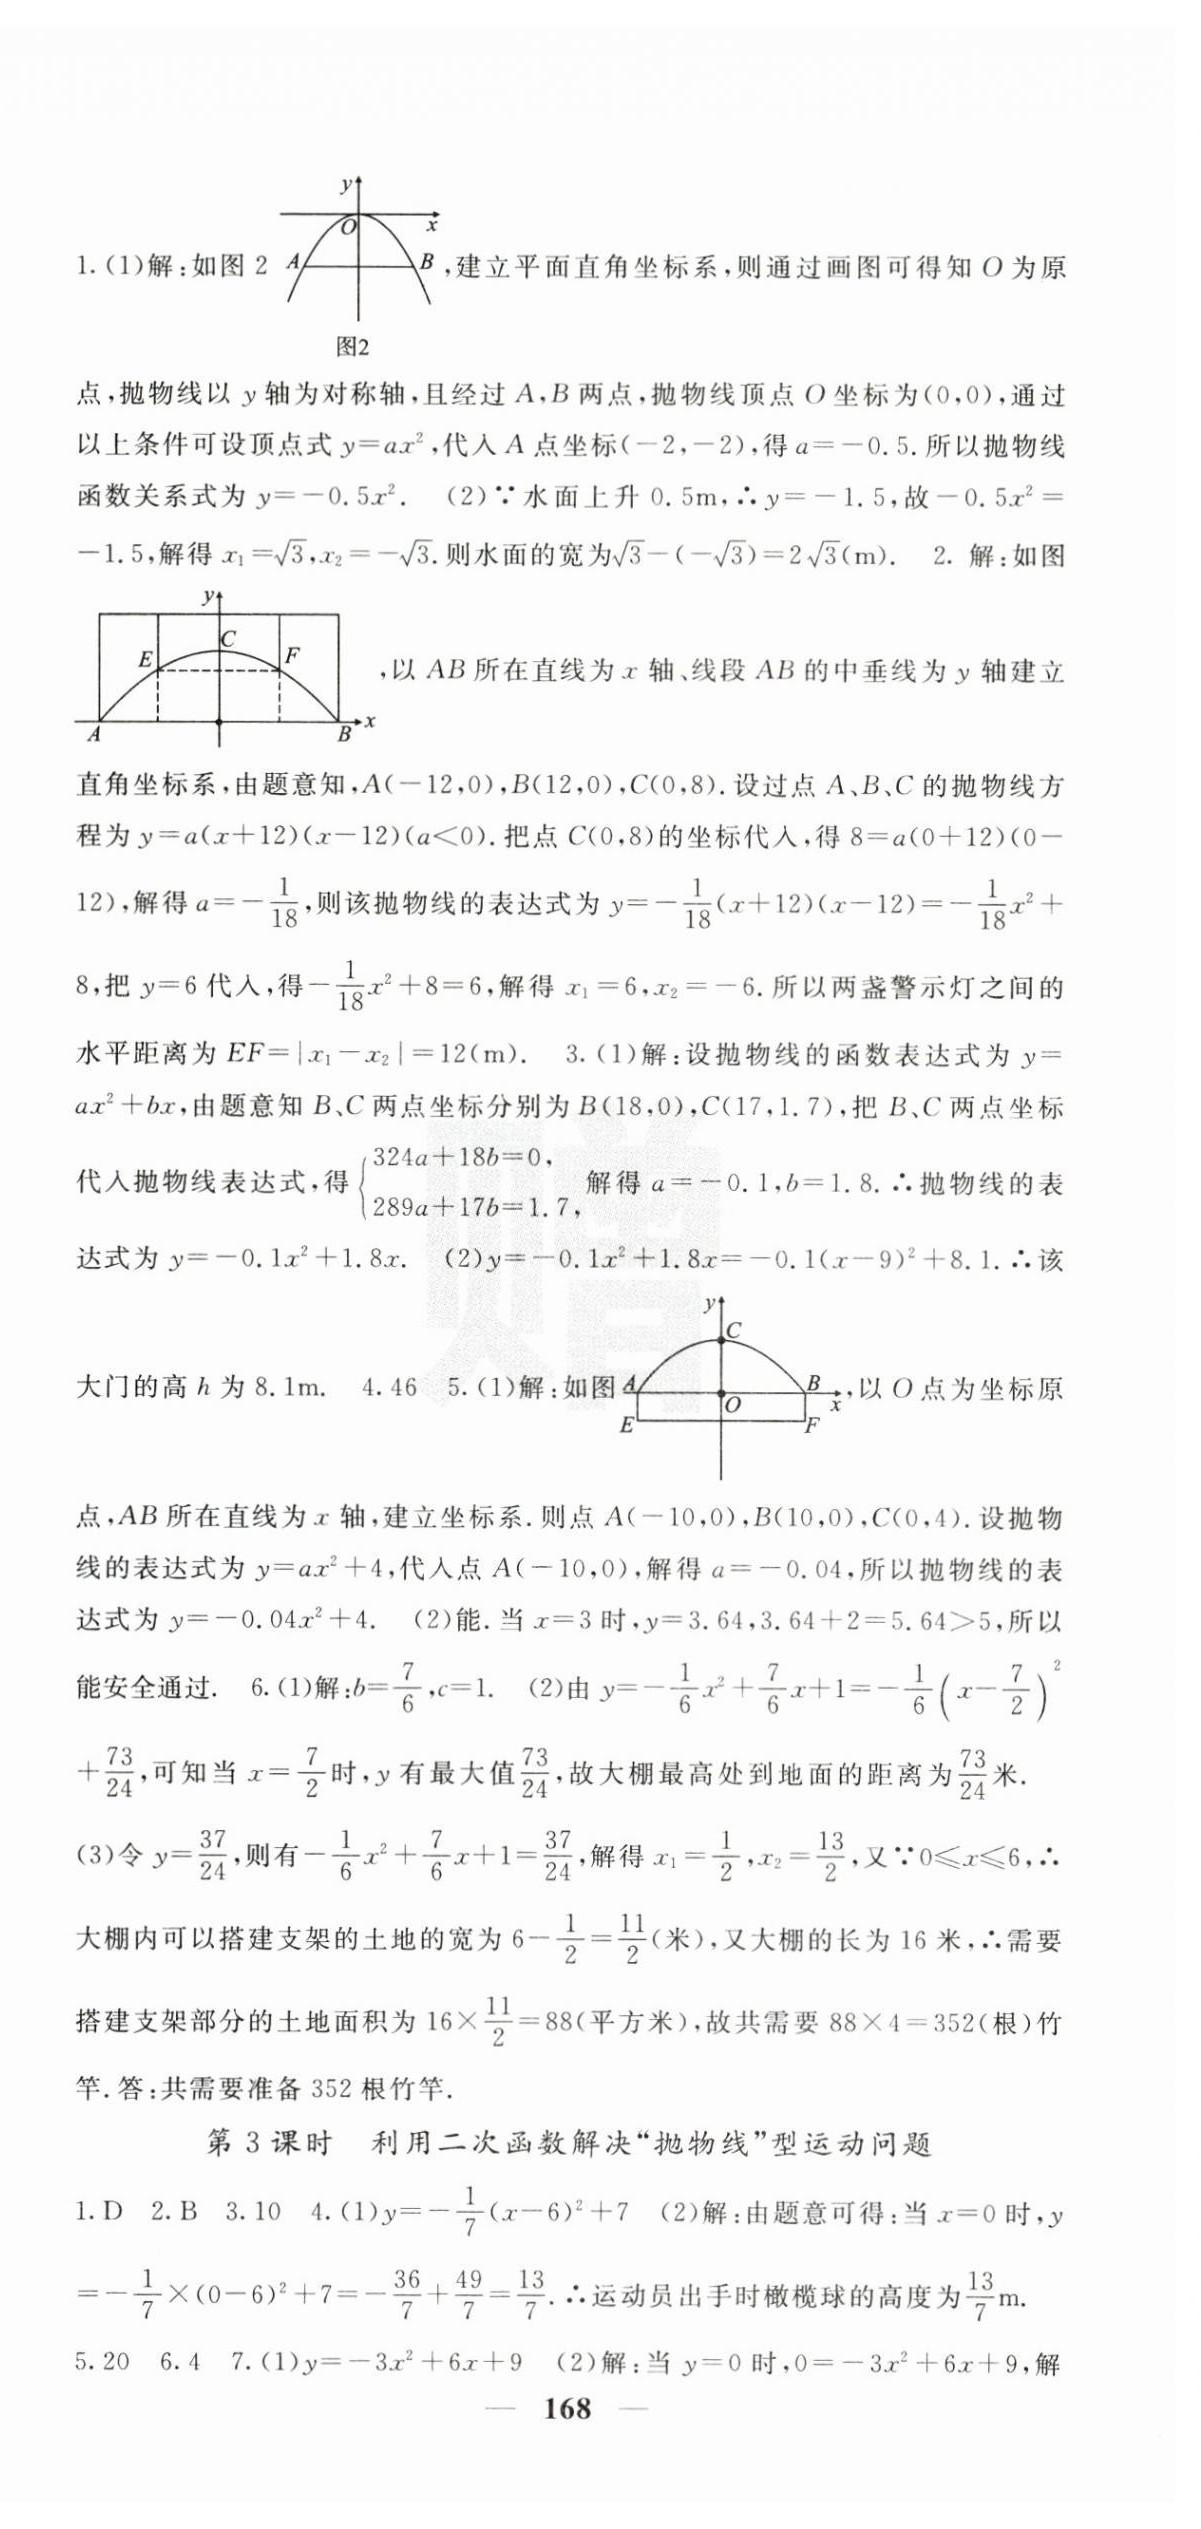 y
O
x
1.(1)解:如图2 A B ,建立平面直角坐标系,则通过画图可得知O为原
图2
点,抛物线以y轴为对称轴,且经过A,B两点,抛物线顶点O坐标为(0,0),通过
以上条件可设顶点式y=ax²,代入A点坐标(-2,-2),得a=-0.5.所以抛物线
函数关系式为y=-0.5x². (2)∵水面上升0.5m,∴y=-1.5,故-0.5x²=
-1.5,解得x₁=√3,x₂=-√3.则水面的宽为√3-(-√3)=2√3(m). 2. 解:如图
y
C
E F
,以AB所在直线为x轴、线段AB的中垂线为y轴建立
A B x
直角坐标系,由题意知,A(-12,0),B(12,0),C(0,8).设过点A、B、C的抛物线方
程为y=a(x+12)(x-12)(a<0).把点C(0,8)的坐标代入,得8=a(0+12)(0-
12),解得a=-1/18,则该抛物线的表达式为y=-1/18(x+12)(x-12)=-1/18x²+
8,把y=6代入,得-1/18x²+8=6,解得x₁=6,x₂=-6.所以两盏警示灯之间的
水平距离为EF=|x₁-x₂|=12(m). 3.(1)解:设抛物线的函数表达式为y=
ax²+bx,由题意知B、C两点坐标分别为B(18,0),C(17,1.7),把B、C两点坐标
代入抛物线表达式,得{324a+18b=0, 289a+17b=1.7, 解得a=-0.1,b=1.8.∴抛物线的表
达式为y=-0.1x²+1.8x. (2)y=-0.1x²+1.8x=-0.1(x-9)²+8.1.∴该
y
C
大门的高h为8.1m. 4.46 5.(1)解:如图 A B x ,以O点为坐标原
O
E F
点,AB所在直线为x轴,建立坐标系.则点A(-10,0),B(10,0),C(0,4).设抛物
线的表达式为y=ax²+4,代入点A(-10,0),解得a=-0.04,所以抛物线的表
达式为y=-0.04x²+4. (2)能.当x=3时,y=3.64,3.64+2=5.64>5,所以
能安全通过. 6.(1)解:b=7/6,c=1. (2)由y=-1/6x²+7/6x+1=-1/6(x-7/2)²
+73/24,可知当x=7/2时,y有最大值73/24,故大棚最高处到地面的距离为73/24米.
(3)令y=37/24,则有-1/6x²+7/6x+1=37/24,解得x₁=1/2,x₂=13/2,又∵0≤x≤6,∴
大棚内可以搭建支架的土地的宽为6-1/2=11/2(米),又大棚的长为16米,∴需要
搭建支架部分的土地面积为16×11/2=88(平方米),故共需要88×4=352(根)竹
竿.答:共需要准备352根竹竿.
第3课时 利用二次函数解决“抛物线”型运动问题
1.D 2.B 3.10 4.(1)y=-1/7(x-6)²+7 (2)解:由题意可得:当x=0时,y
=-1/7×(0-6)²+7=-36/7+49/7=13/7.∴运动员出手时橄榄球的高度为13/7m.
5.20 6.4 7.(1)y=-3x²+6x+9 (2)解:当y=0时,0=-3x²+6x+9,解
— 168 —